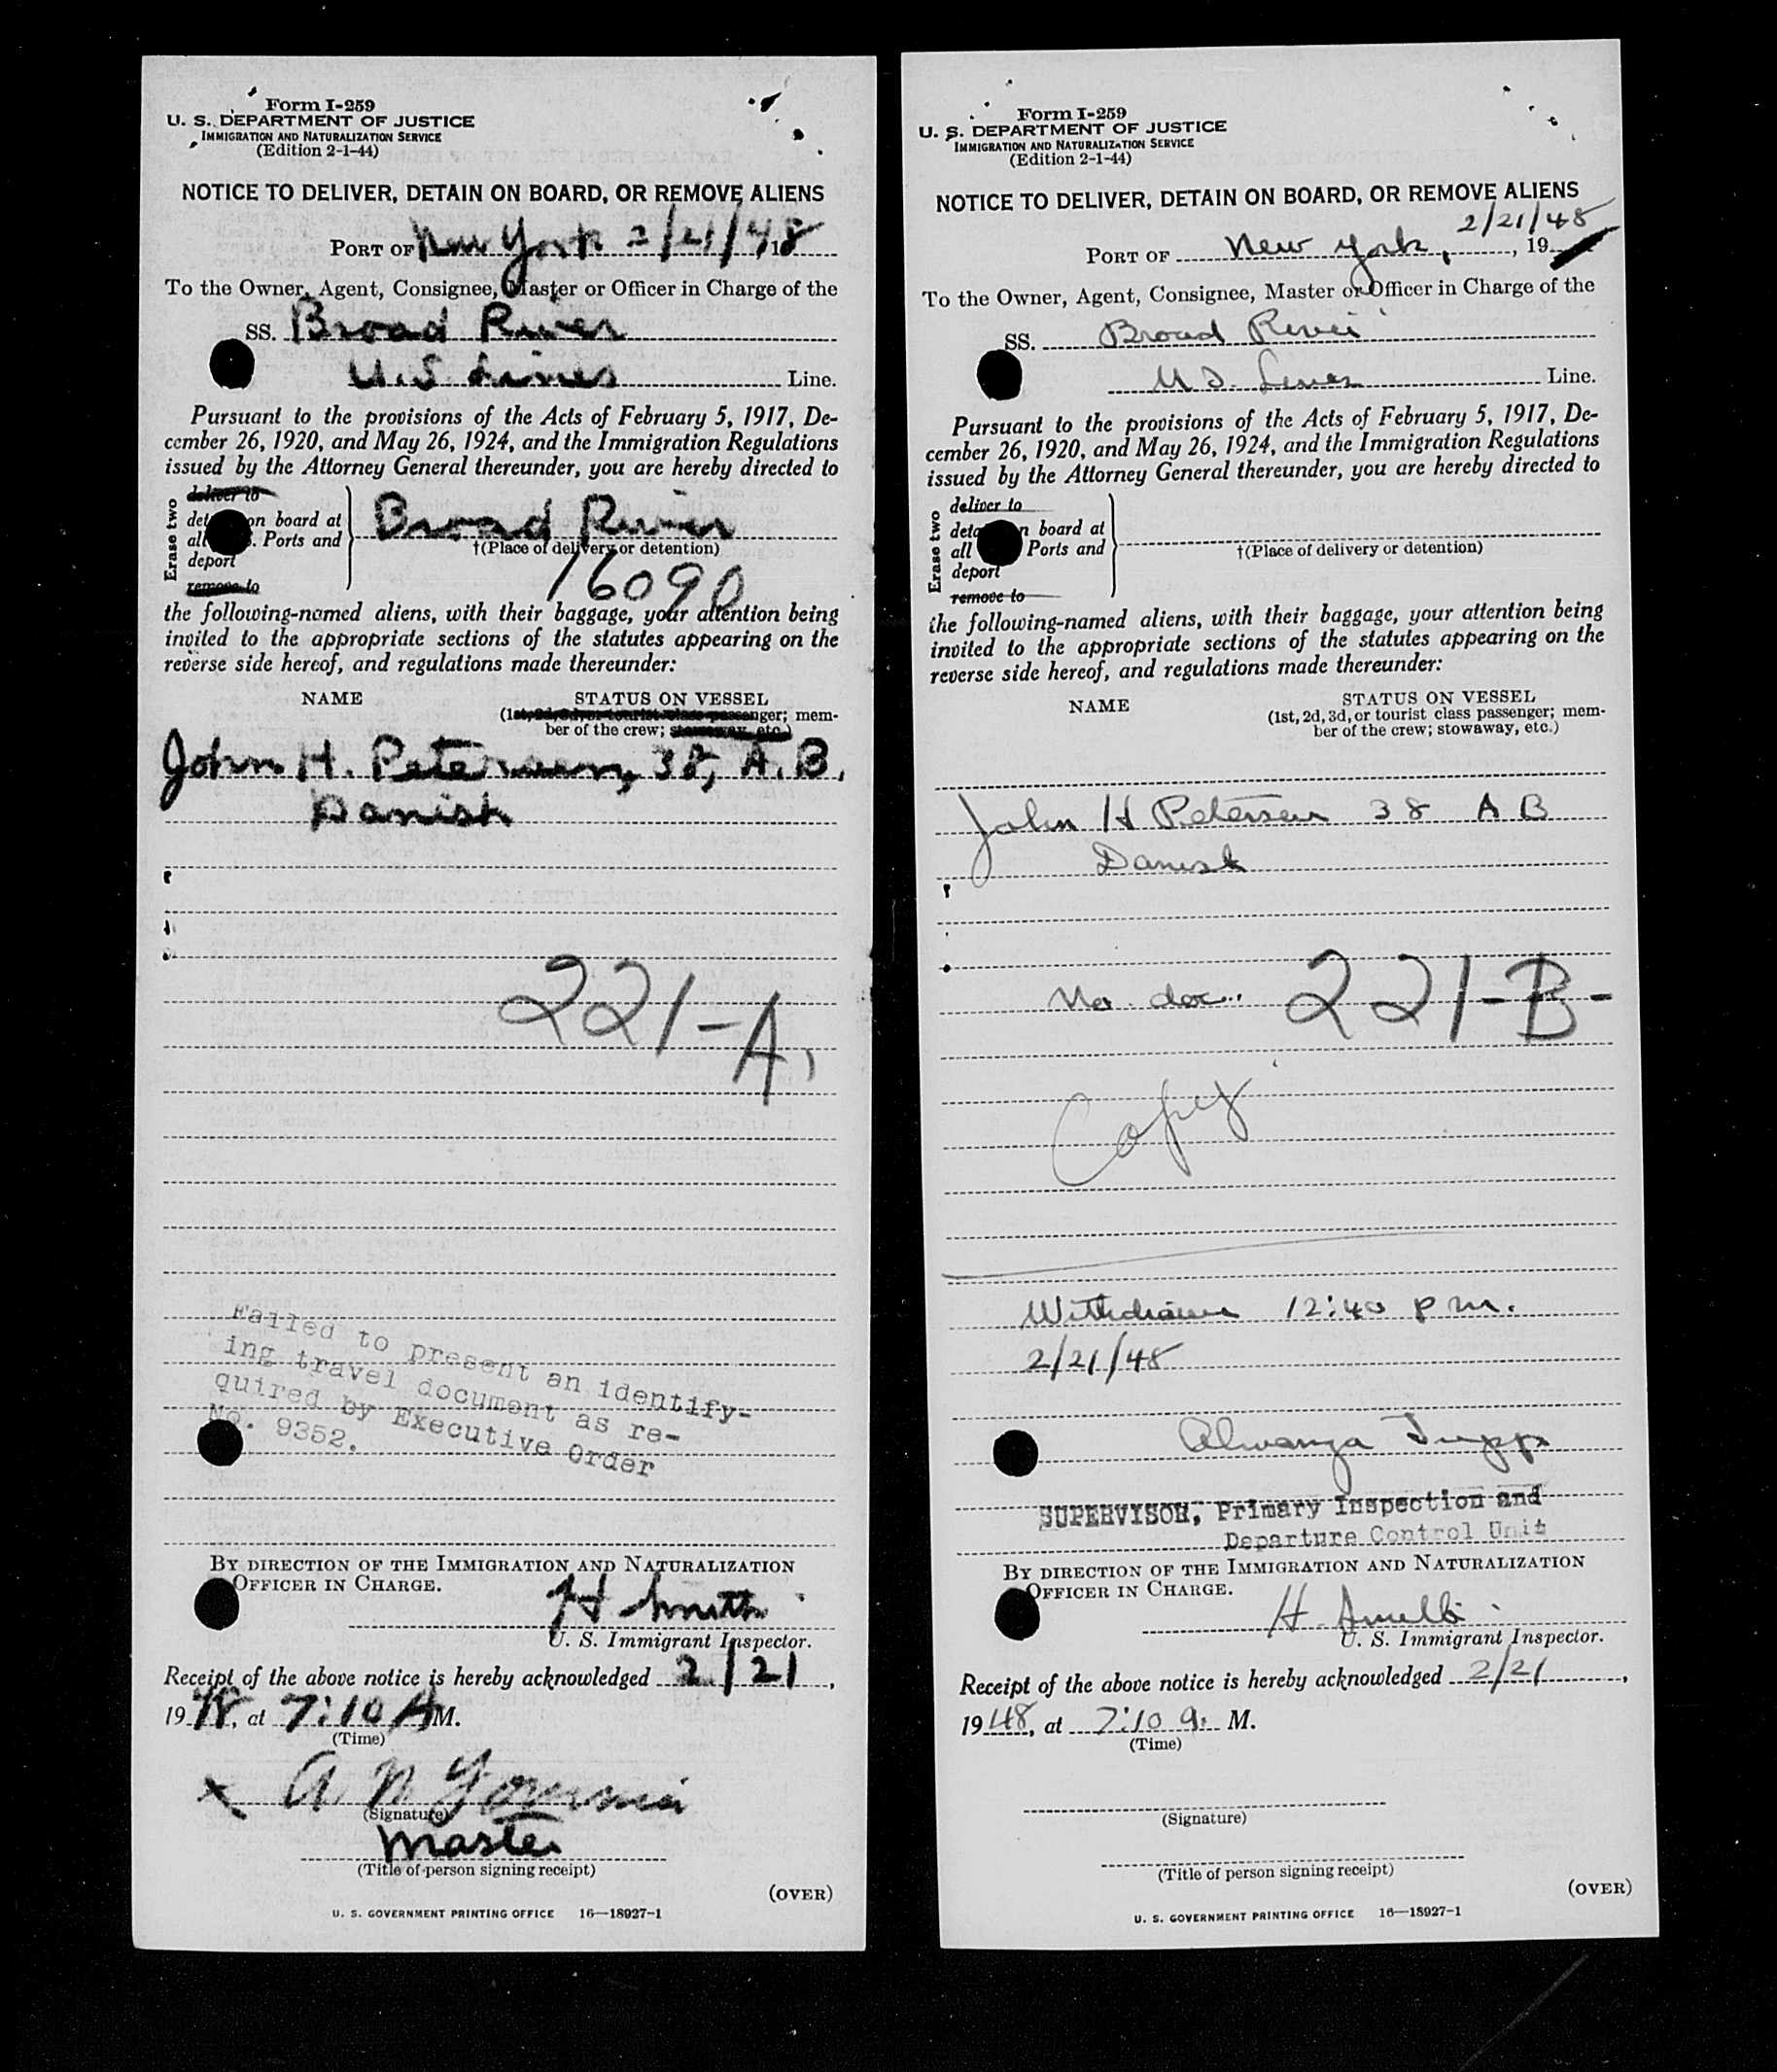 Form I-259
U. S. DEPARTMENT OF JUSTICE
IMMIGRATION AND NATURALIZATION SERVICE
(Edition 2-1-44)
NOTICE TO DELIVER, DETAIN ON BOARD, OR REMOVE ALIENS
PORT OF New York 2/21/48
To the Owner, Agent, Consignee, Master or Officer in Charge of the
SS. Broad River
U.S. Lines Line.
Pursuant to the provisions of the Acts of February 5, 1917, De-
cember 26, 1920, and May 26, 1924, and the Immigration Regulations
issued by the Attorney General thereunder, you are hereby directed to
Erase two
deliver to
on board at
Ports and
deport
remove to
Broad River
†(Place of delivery or detention)
16090
the following-named aliens, with their baggage, your attention being
invited to the appropriate sections of the statutes appearing on the
reverse side hereof, and regulations made thereunder:
NAME STATUS ON VESSEL
(1st, 2d, 3d, or tourist class passenger; mem-
ber of the crew; stowaway, etc.)
John H. Petersen, 38, A.B.
Danish
221-A
Failed to present an identify-
ing travel document as re-
quired by Executive Order
No. 9352.
BY DIRECTION OF THE IMMIGRATION AND NATURALIZATION
OFFICER IN CHARGE.
H Smith
U. S. Immigrant Inspector.
Receipt of the above notice is hereby acknowledged 2/21,
1948, at 7:10 A M.
(Time)
x A N
(Signature)
Master
(Title of person signing receipt)
(OVER)
U. S. GOVERNMENT PRINTING OFFICE 16—18927-1
Form I-259
U. S. DEPARTMENT OF JUSTICE
IMMIGRATION AND NATURALIZATION SERVICE
(Edition 2-1-44)
NOTICE TO DELIVER, DETAIN ON BOARD, OR REMOVE ALIENS
2/21/48
PORT OF New York, , 19
To the Owner, Agent, Consignee, Master or Officer in Charge of the
SS. Broad River
U S. Lines Line.
Pursuant to the provisions of the Acts of February 5, 1917, De-
cember 26, 1920, and May 26, 1924, and the Immigration Regulations
issued by the Attorney General thereunder, you are hereby directed to
Erase two
deliver to
on board at
all Ports and
deport
remove to
†(Place of delivery or detention)
the following-named aliens, with their baggage, your attention being
invited to the appropriate sections of the statutes appearing on the
reverse side hereof, and regulations made thereunder:
NAME STATUS ON VESSEL
(1st, 2d, 3d, or tourist class passenger; mem-
ber of the crew; stowaway, etc.)
John H Petersen 38 A B
Danish
No doc. 221-B-
Copy
Withdrawn 12:40 p m.
2/21/48
SUPERVISOR, Primary Inspection and
Departure Control Unit
BY DIRECTION OF THE IMMIGRATION AND NATURALIZATION
OFFICER IN CHARGE.
H. Smith
U. S. Immigrant Inspector.
Receipt of the above notice is hereby acknowledged 2/21,
1948, at 7:10 a. M.
(Time)
(Signature)
(Title of person signing receipt)
(OVER)
U. S. GOVERNMENT PRINTING OFFICE 16—18927-1